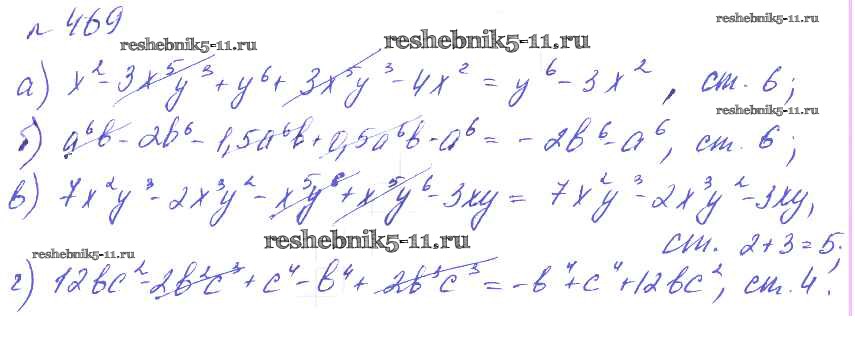 № 469
reshebnik5-11.ru
reshebnik5-11.ru
reshebnik5-11.ru
а) x² - 3x⁵y³ + y⁶ + 3x⁵y³ - 4x² = y⁶ - 3x², ст. 6;
reshebnik5-11.ru
б) a⁶b - 2b⁶ - 1,5a⁶b + 0,5a⁶b - a⁶ = -2b⁶ - a⁶, ст. 6;
в) 7x²y³ - 2x³y² - x⁵y⁶ + x⁵y⁶ - 3xy = 7x²y³ - 2x³y² - 3xy,
reshebnik5-11.ru
ст. 2+3=5;
reshebnik5-11.ru
г) 12bc² - 2b²c³ + c⁴ - b⁴ + 2b²c³ = -b⁴ + c⁴ + 12bc², ст. 4.